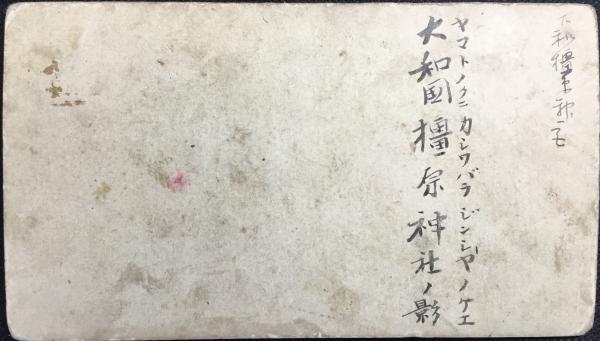 大和橿原神社
ヤマトノクニカシワバラジンジヤノケエ
大和國橿原神社ノ影